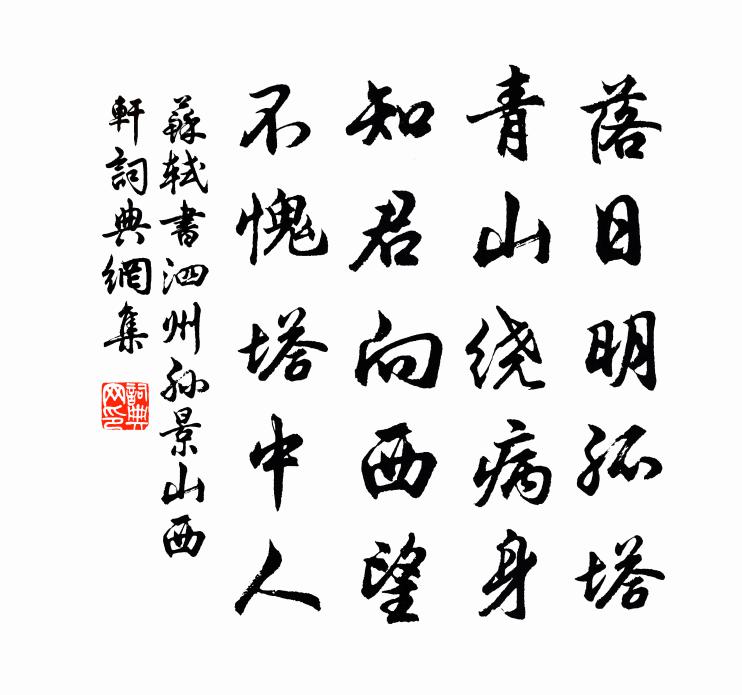 落日明孤塔
青山绕病身
知君向西望
不愧塔中人
蘇軾書泗州孫景山西
軒詞典網集
詞典
网印